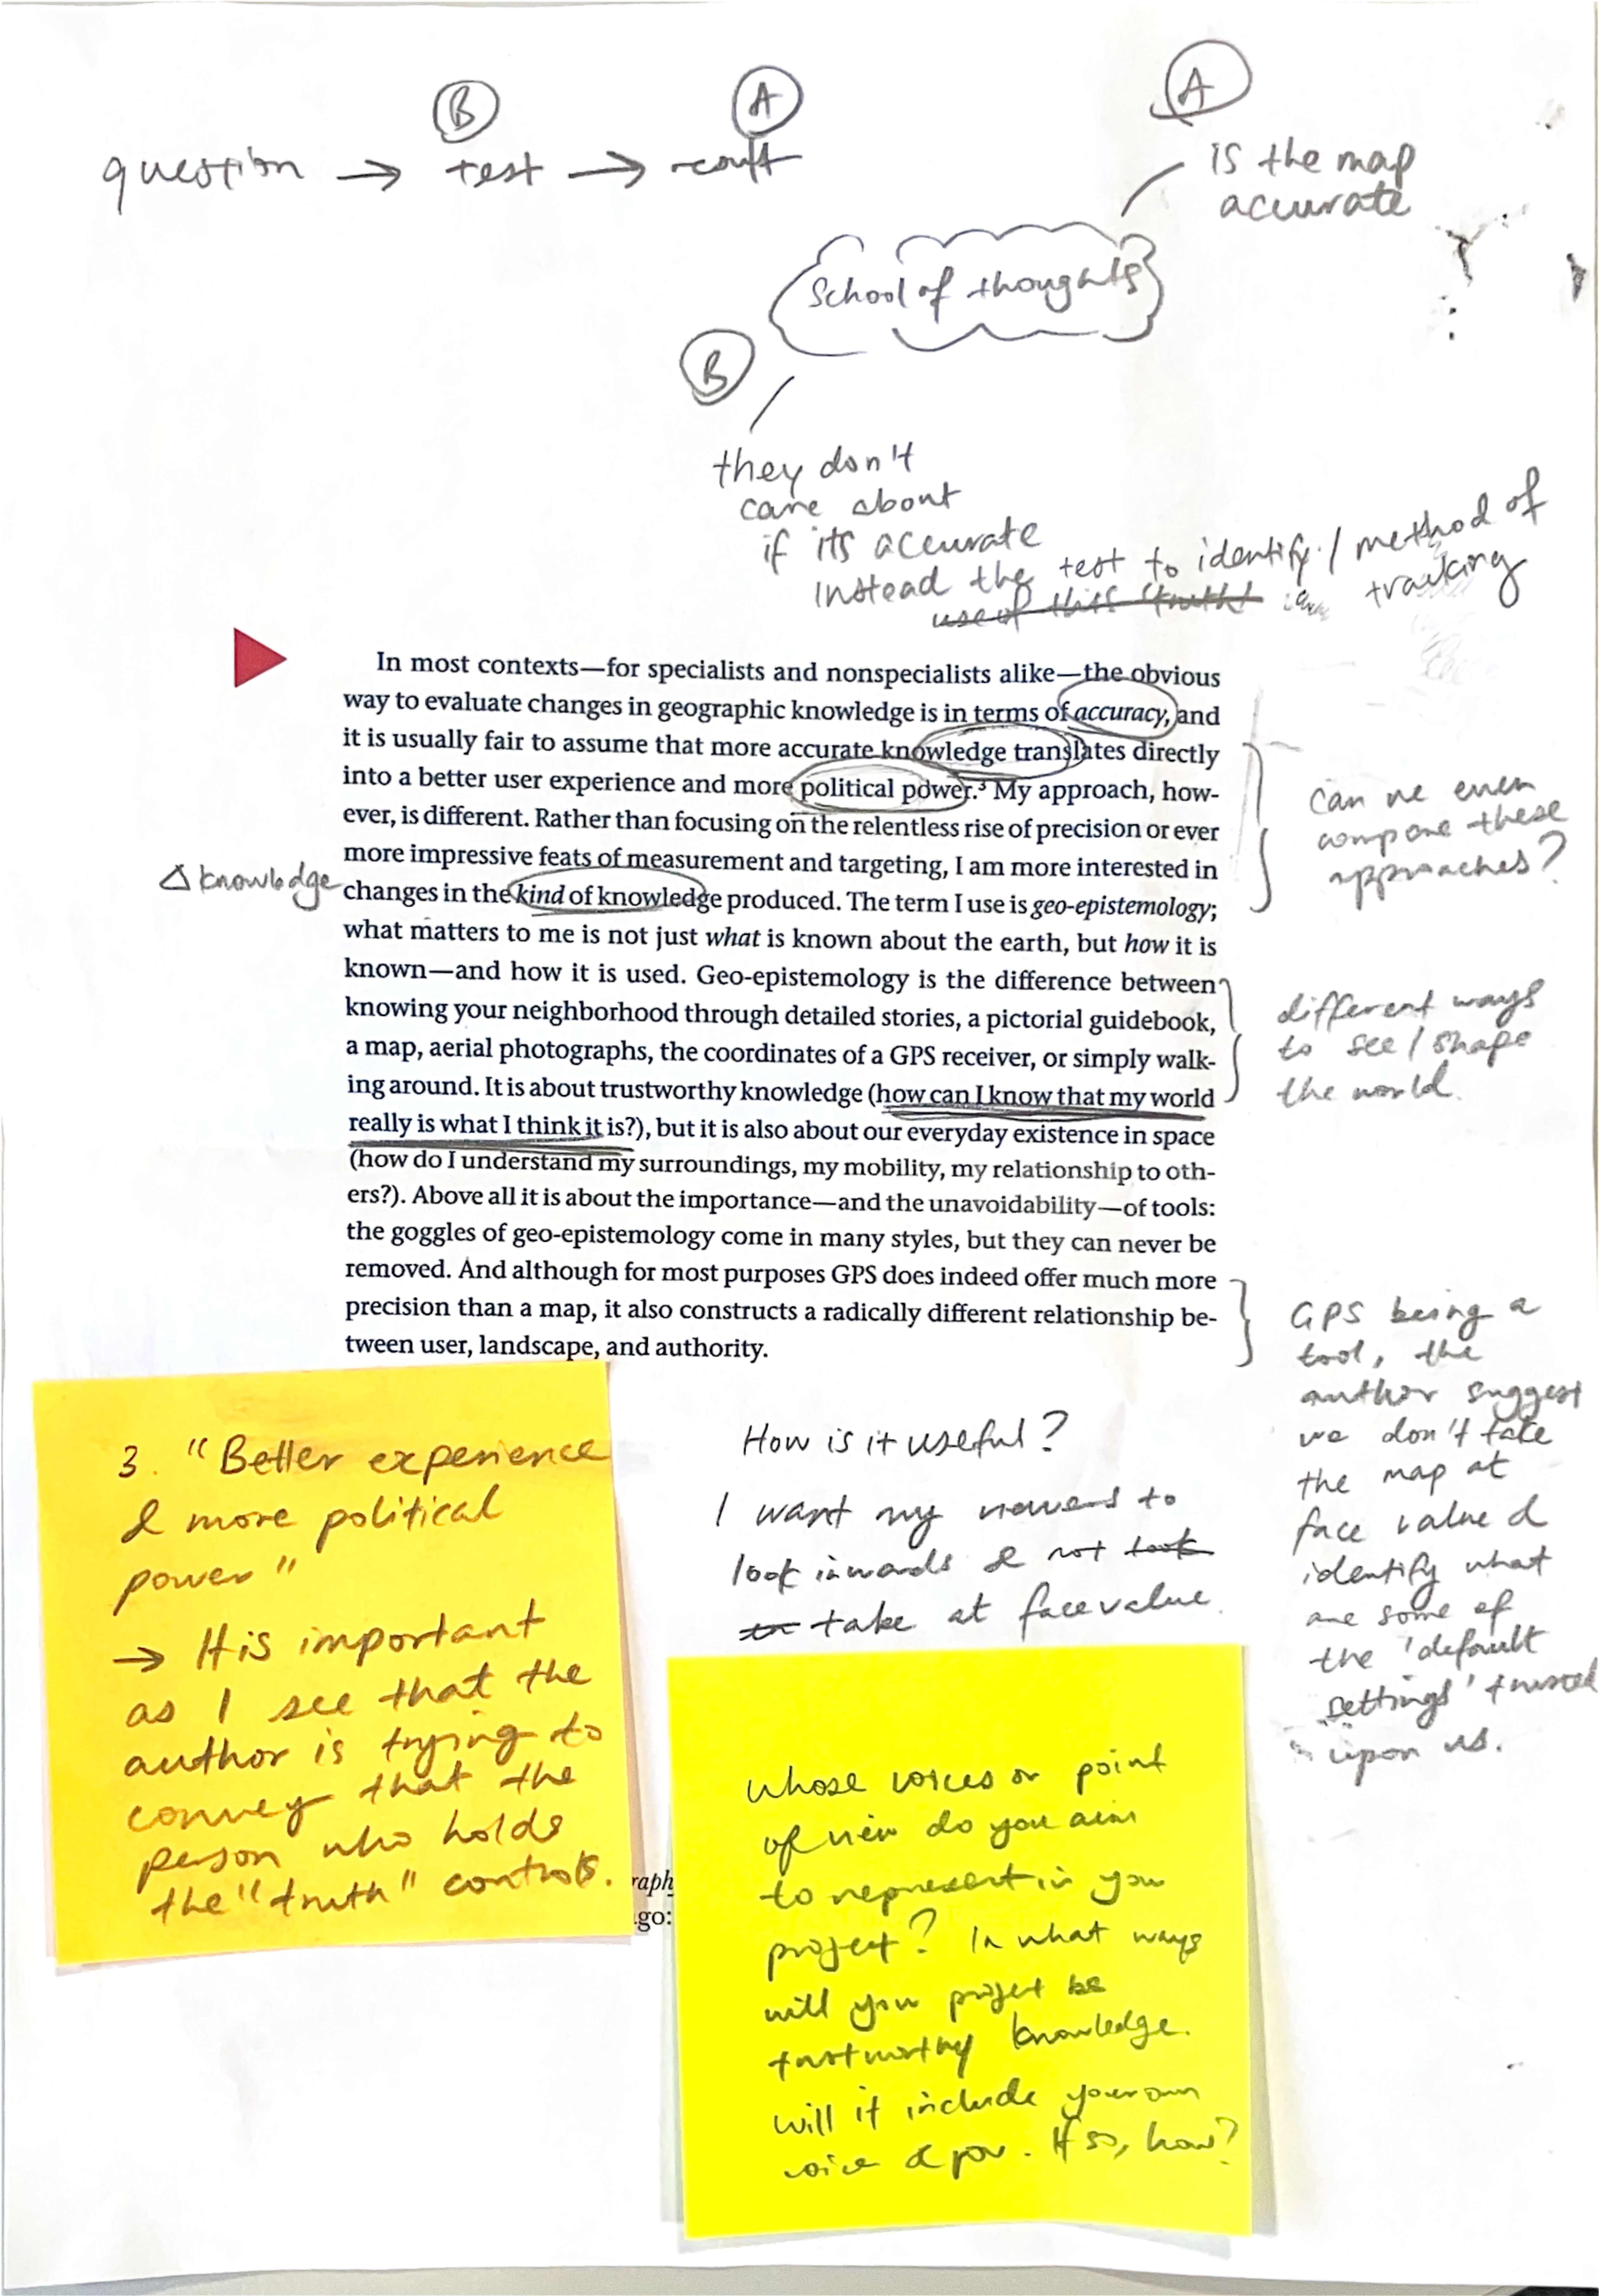 B
A
question → test → result
A
is the map
accurate
School of thoughts
B
they don't
care about
if its accurate
Instead the test to identify / method of
use of this "truth" tracking
In most contexts—for specialists and nonspecialists alike—the obvious
way to evaluate changes in geographic knowledge is in terms of accuracy, and
it is usually fair to assume that more accurate knowledge translates directly
into a better user experience and more political power.³ My approach, how-
ever, is different. Rather than focusing on the relentless rise of precision or ever
more impressive feats of measurement and targeting, I am more interested in
changes in the kind of knowledge produced. The term I use is geo-epistemology;
what matters to me is not just what is known about the earth, but how it is
known—and how it is used. Geo-epistemology is the difference between
knowing your neighborhood through detailed stories, a pictorial guidebook,
a map, aerial photographs, the coordinates of a GPS receiver, or simply walk-
ing around. It is about trustworthy knowledge (how can I know that my world
really is what I think it is?), but it is also about our everyday existence in space
(how do I understand my surroundings, my mobility, my relationship to oth-
ers?). Above all it is about the importance—and the unavoidability—of tools:
the goggles of geo-epistemology come in many styles, but they can never be
removed. And although for most purposes GPS does indeed offer much more
precision than a map, it also constructs a radically different relationship be-
tween user, landscape, and authority.
Δ knowledge
can we even
compare these
approaches?
different ways
to see / shape
the world.
GPS being a
tool, the
author suggest
we don't take
the map at
face value &
identify what
are some of
the 'default
settings' trusted
upon us.
3. "Better experience
& more political
power"
→ It is important
as I see that the
author is trying to
convey that the
person who holds
the "truth" controls.
How is it useful?
I want my viewers to
look inwards & not took
to take at face value.
raph
go:
whose voices or point
of view do you aim
to represent in your
project? In what ways
will your project be
trustworthy knowledge.
will it include your own
voice & pov. If so, how?